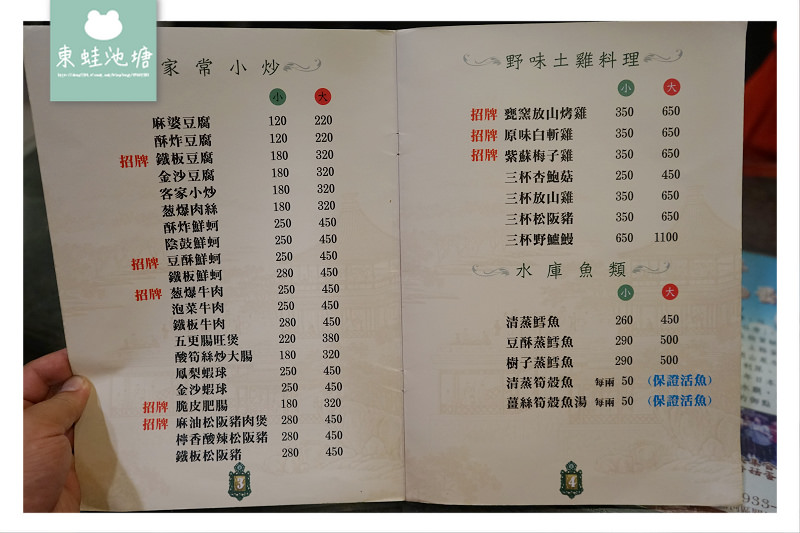 東蛙池塘
家常小炒
小 大
麻婆豆腐 120 220
酥炸豆腐 120 220
招牌 鐵板豆腐 180 320
金沙豆腐 180 320
客家小炒 180 320
葱爆肉絲 180 320
酥炸鮮蚵 250 450
陰鼓鮮蚵 250 450
招牌 豆酥鮮蚵 250 450
鐵板鮮蚵 280 450
招牌 葱爆牛肉 250 450
泡菜牛肉 250 450
鐵板牛肉 280 450
五更腸旺煲 220 380
酸筍絲炒大腸 180 320
鳳梨蝦球 250 450
金沙蝦球 250 450
招牌 脆皮肥腸 180 320
招牌 麻油松阪豬肉煲 280 450
檸香酸辣松阪豬 280 450
鐵板松阪豬 280 450
3
野味土雞料理
小 大
招牌 甕窯放山烤雞 350 650
招牌 原味白斬雞 350 650
招牌 紫蘇梅子雞 350 650
三杯杏鮑菇 250 450
三杯放山雞 350 650
三杯松阪豬 350 650
三杯野鱸鰻 650 1100
水庫魚類
小 大
清蒸鱈魚 260 450
豆酥蒸鱈魚 290 500
樹子蒸鱈魚 290 500
清蒸筍殼魚 每兩 50 (保證活魚)
薑絲筍殼魚湯 每兩 50 (保證活魚)
4
933-